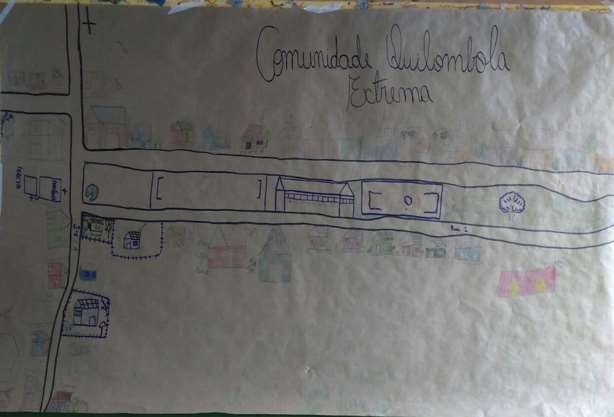 Comunidade Quilombola
Extrema